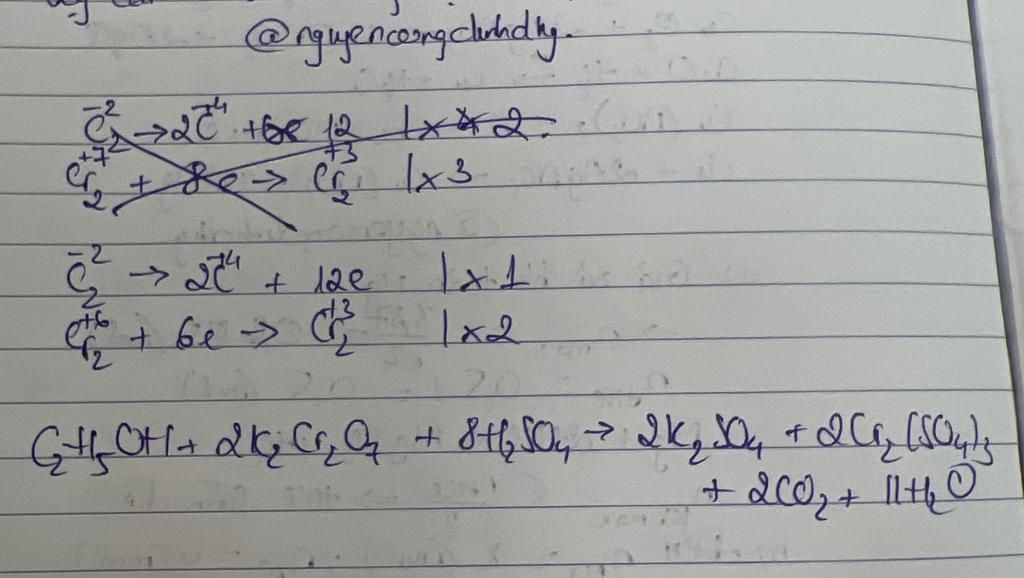 @nguyencongchinhdhy.
C₂⁻² → 2C⁺⁴ + 6e 12 | x 4 2.
Cr₂⁺⁷ + 8e → Cr₂⁺³ | x 3
C₂⁻² → 2C⁺⁴ + 12e | x 1
Cr₂⁺⁶ + 6e → Cr₂⁺³ | x 2
C₂H₅OH + 2K₂Cr₂O₇ + 8H₂SO₄ → 2K₂SO₄ + 2Cr₂(SO₄)₃
+ 2CO₂ + 11H₂O